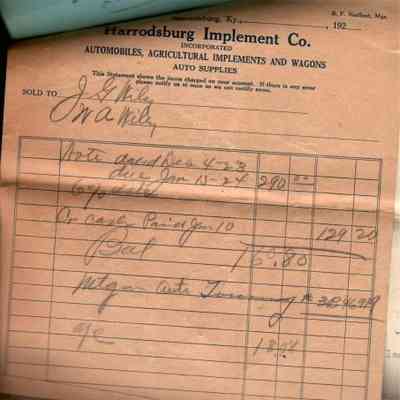 Harrodsburg, Ky., 192
Harrodsburg Implement Co.
INCORPORATED
AUTOMOBILES, AGRICULTURAL IMPLEMENTS AND WAGONS
AUTO SUPPLIES
This Statement shows the items charged on your account. If there is any error
please notify us at once as we cannot rectify errors.
SOLD TO J G Wiley
W A Wiley
Note dated Dec 4-23
due Jan 15-24 290 00
Cr cash Paid Jan 10 129 20
Bal
Mtg on Auto
a/c